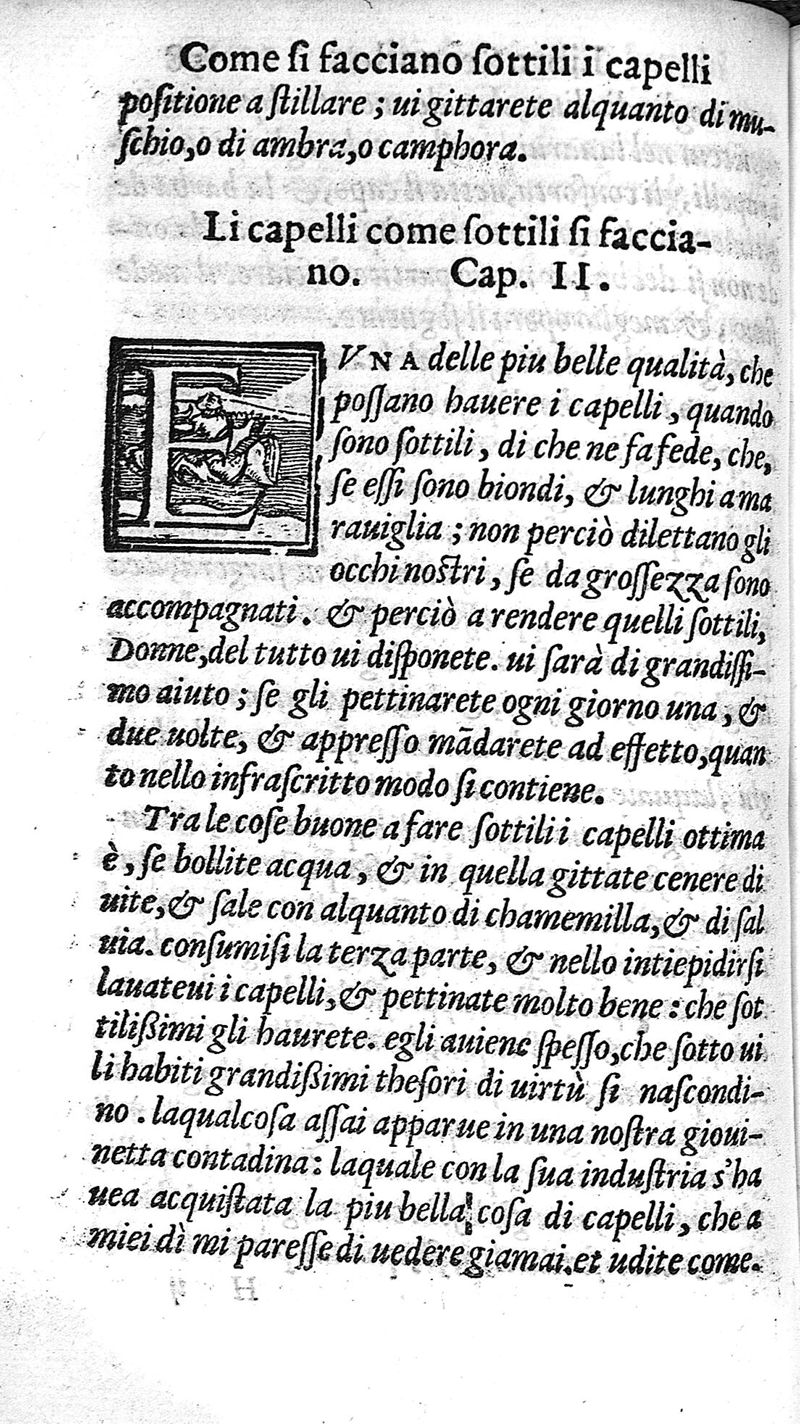 Come ſi facciano ſottili i capelli
poſitione a ſtillare; ui gittarete alquanto di mu-
ſchio, o di ambra, o camphora.
Li capelli come ſottili ſi faccia-
no. Cap. II.
E VNA delle piu belle qualità, che
poſſano hauere i capelli, quando
ſono ſottili, di che ne fa fede, che,
ſe eſſi ſono biondi, & lunghi a ma
rauiglia; non perciò dilettano gli
occhi noſtri, ſe da groſſezza ſono
accompagnati. & perciò a rendere quelli ſottili,
Donne, del tutto ui diſponete. ui ſarà di grandiſſi-
mo aiuto; ſe gli pettinarete ogni giorno una, &
due uolte, & appreſſo mādarete ad effetto, quan
to nello infraſcritto modo ſi contiene.
Tra le coſe buone a fare ſottili i capelli ottima
è, ſe bollite acqua, & in quella gittate cenere di
uite, & ſale con alquanto di chamemilla, & di ſal
uia. conſumiſi la terza parte, & nello intiepidirſi
lauateui i capelli, & pettinate molto bene: che ſot
tilißimi gli haurete. egli auiene ſpeſſo, che ſotto ui
li habiti grandißimi theſori di uirtù ſi naſcondi-
no. laqualcoſa aſſai apparue in una noſtra gioui-
netta contadina: laquale con la ſua induſtria s'ha
uea acquiſtata la piu bella coſa di capelli, che a
miei dì mi pareſſe di uedere giamai. et udite come.